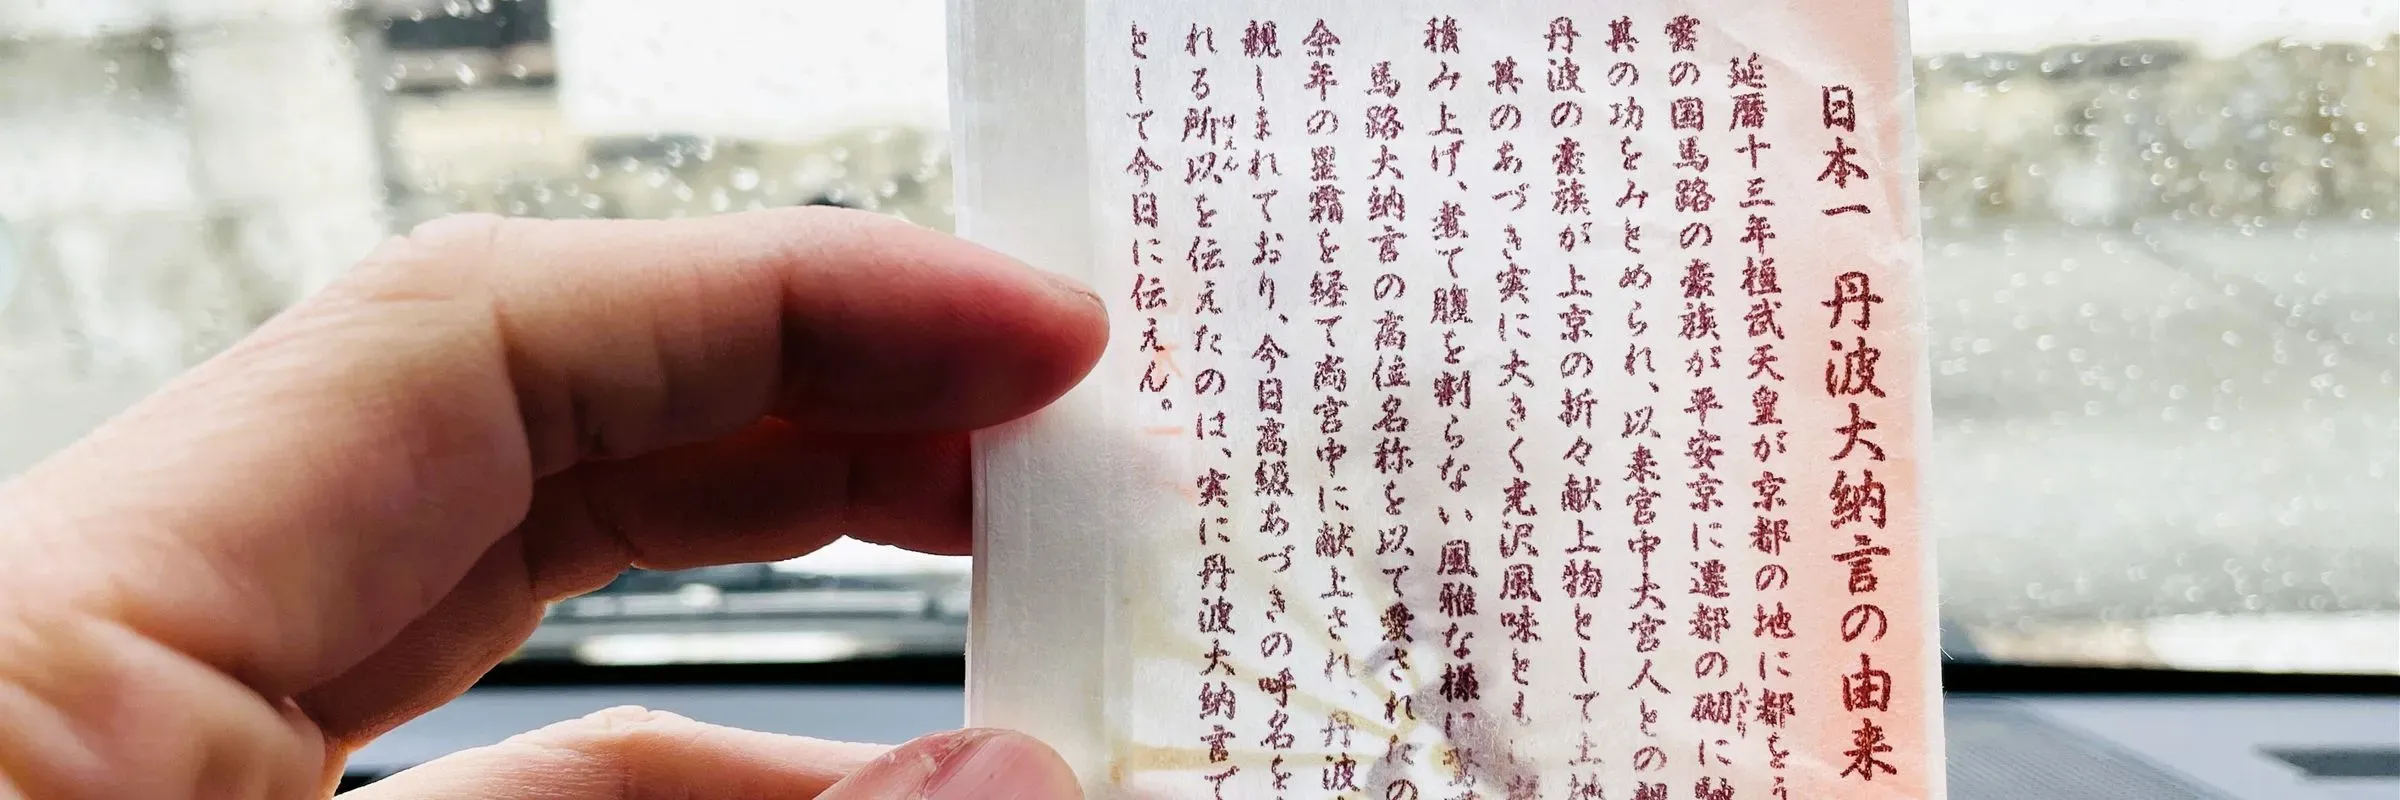 日本一 丹波大納言の由来
延暦十三年桓武天皇が京都の地に都をう
雲の国馬路の豪族が平安京に遷都の砌に馳
其の功をみとめられ、以来宮中大宮人との親
丹波の豪族が上京の折々献上物として土地
其のあづき実に大きく光沢風味とも
積み上げ、煮て腹を割らない風雅な様に
馬路大納言の高位名称を以て愛されたの
余年の星霜を経て尚宮中に献上され、丹波
親しまれており、今日高級あづきの呼名を
れる所以を伝えたのは、実に丹波大納言で
として今日に伝えん。